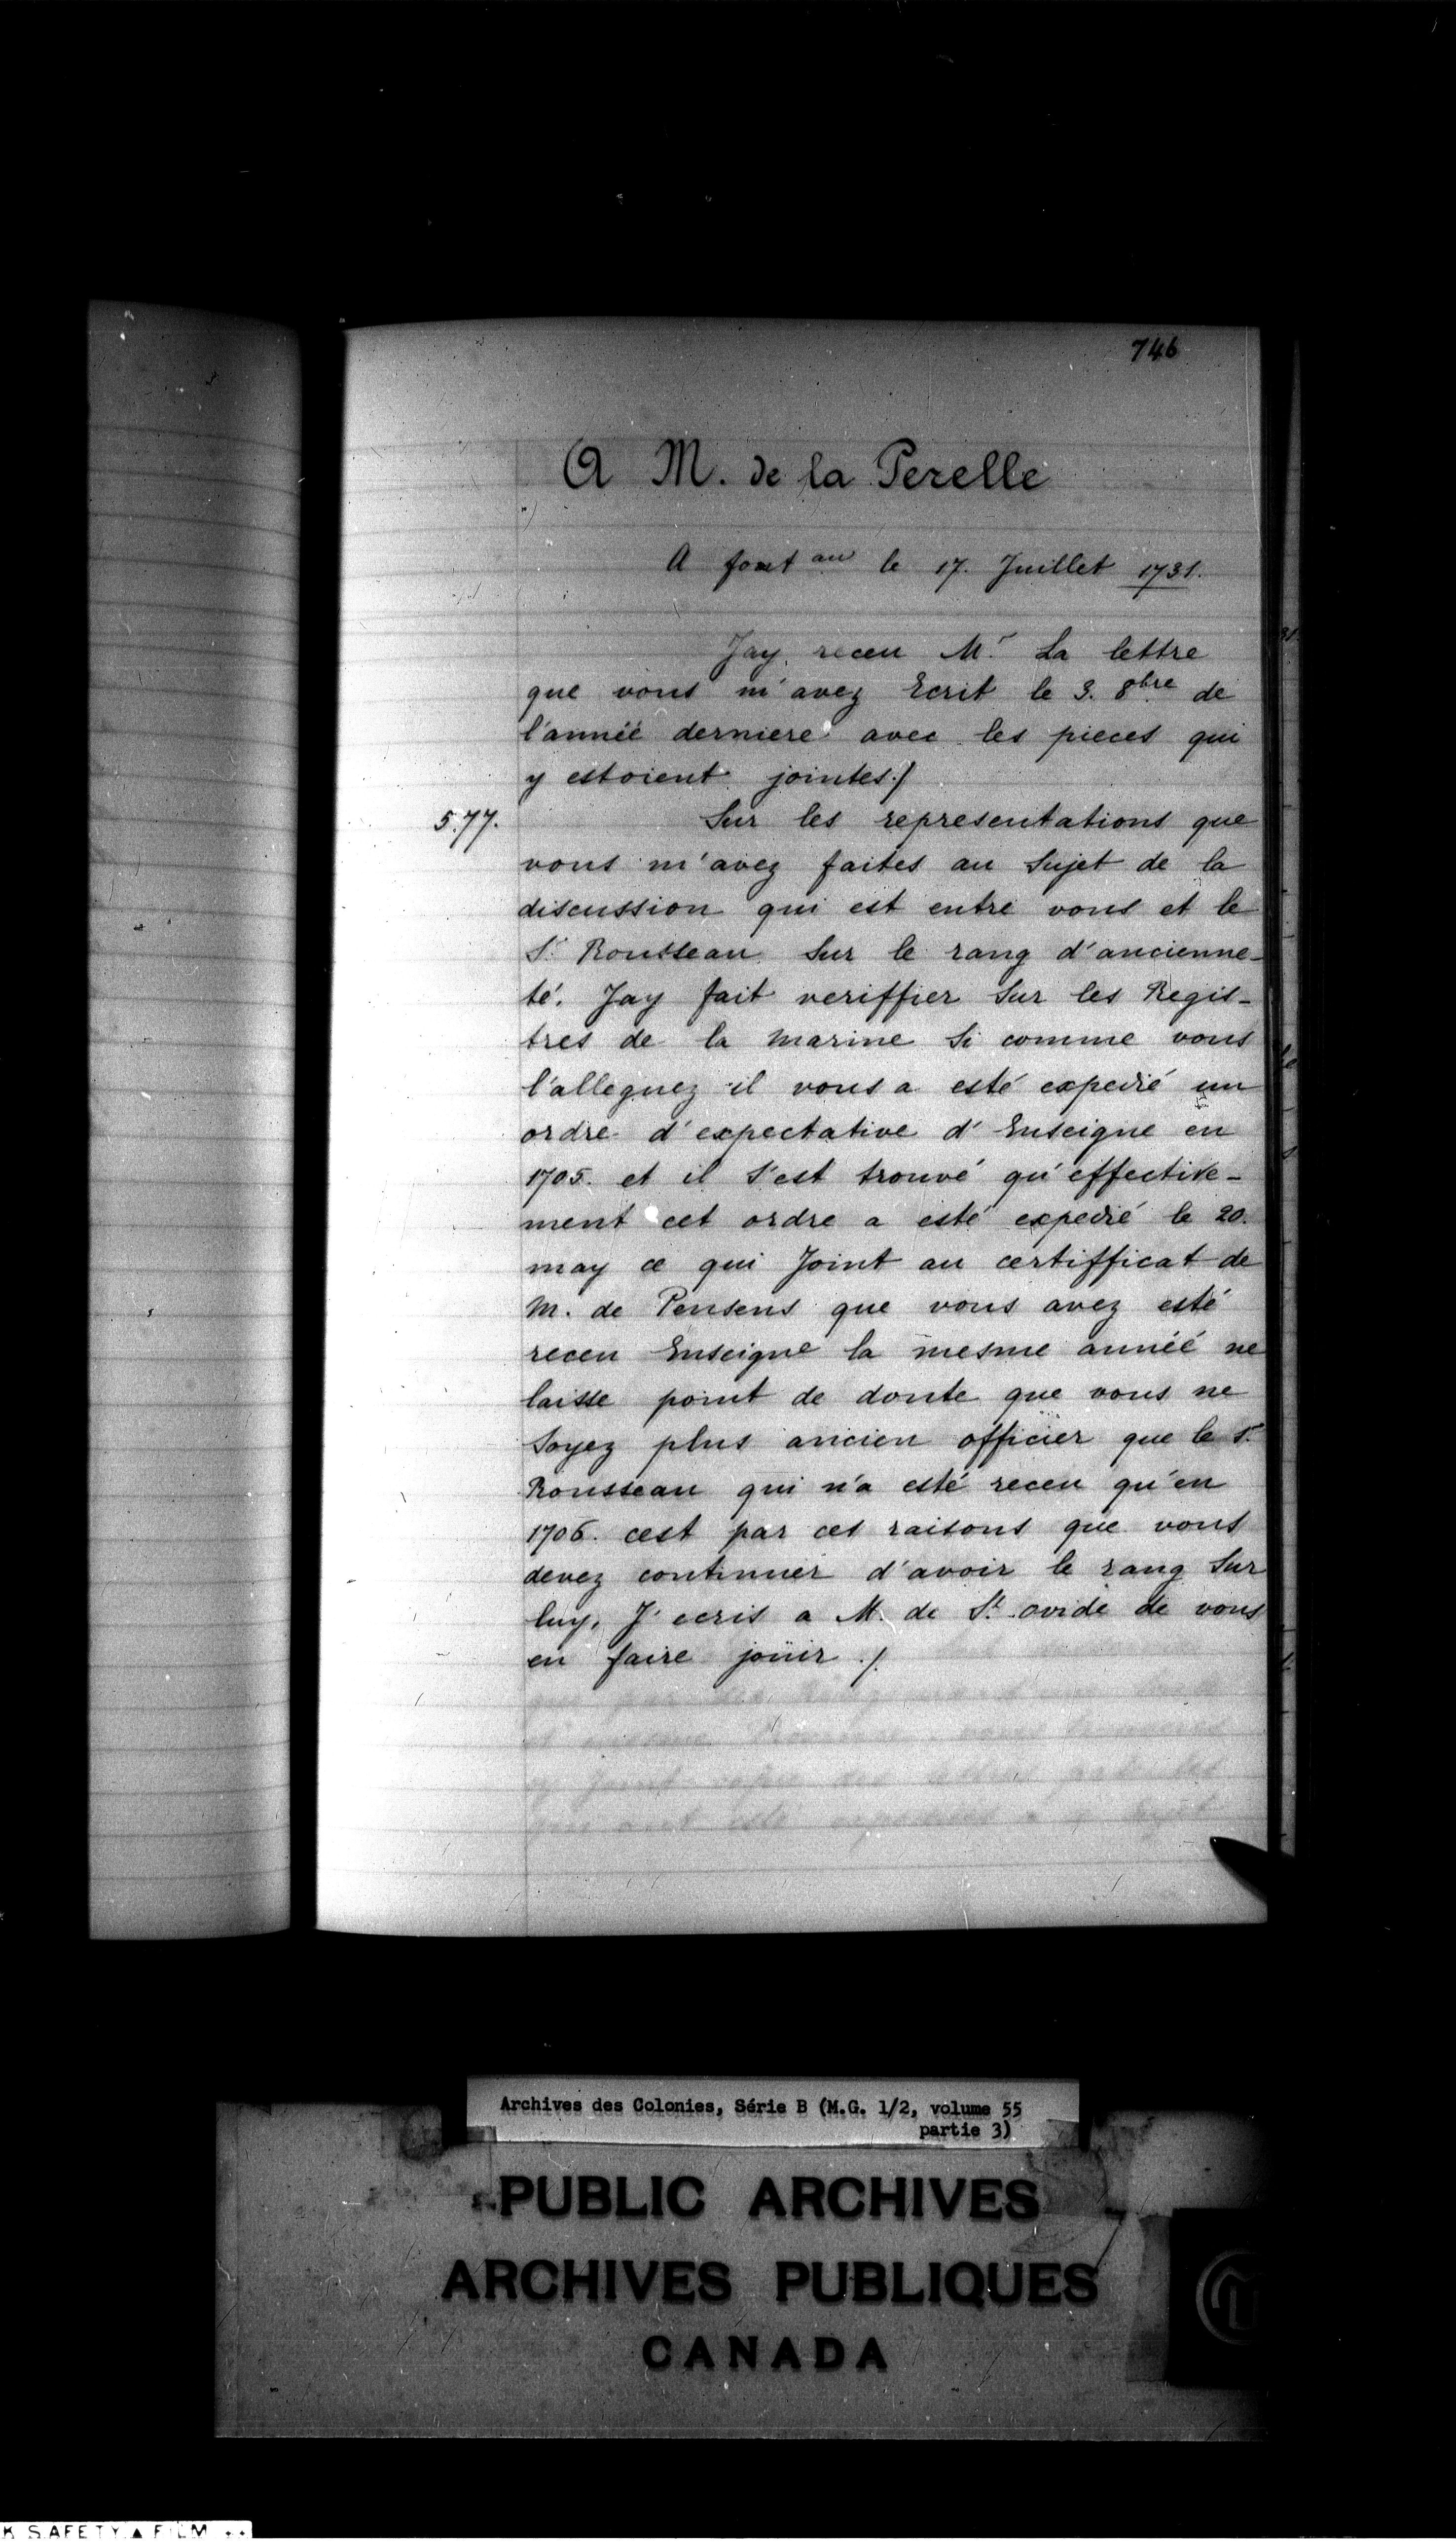 746
A M. de la Perelle
A font au le 17. Juillet 1731.
Jay receu Mr. La lettre
que vous m'avez Ecrit le 3. 8bre de
l'année derniere avec les pieces qui
y estoient jointes./
5.77.
Sur les representations que
vous m'avez faites au Sujet de la
discussion qui est entre vous et le
Sr. Rousseau Sur le rang d'ancienne-
té. Jay fait veriffier Sur les Regis-
tres de la marine Si comme vous
l'alleguez il vous a esté expedié un
ordre d'expectative d'Enseigne en
1705. et il S'est trouvé qu'effective-
ment cet ordre a esté expedié le 20.
may ce qui Joint au certifficat de
M. de Pensens que vous avez esté
receu Enseigne la mesme année ne
laisse point de doute que vous ne
Soyez plus ancien officier que le Sr.
Rousseau qui n'a esté receu qu'en
1706. cest par ces raisons que vous
devez continuer d'avoir le rang Sur
luy, J'ecris a M. de St. ovide de vous
en faire joüir ./.
Archives des Colonies, Série B (M.G. 1/2, volume 55
partie 3)
PUBLIC ARCHIVES
ARCHIVES PUBLIQUES
CANADA
K SAFETY ▲ FILM